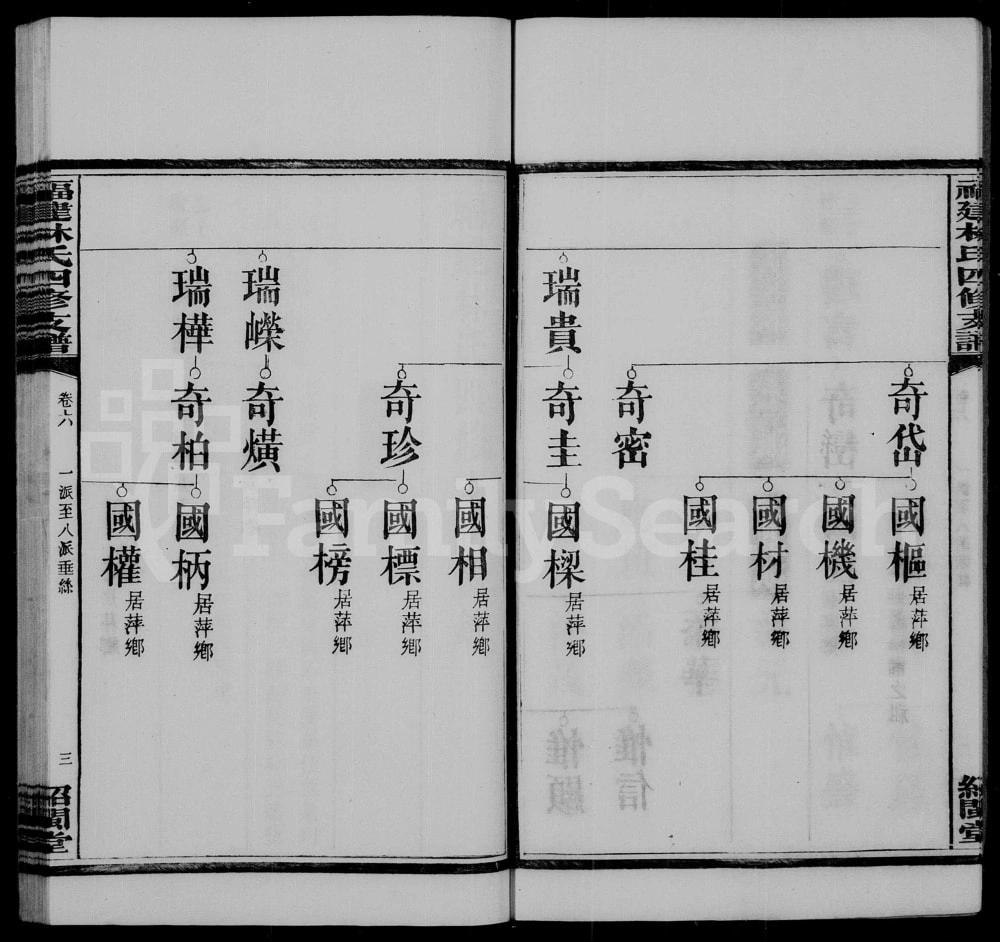 福建林氏四修支譜
奇岱
國樞 居萍鄉
國機 居萍鄉
國材 居萍鄉
國桂 居萍鄉
奇密
瑞貴
奇圭
國樑 居萍鄉
國相 居萍鄉
奇珍
國標 居萍鄉
國榜 居萍鄉
瑞嶸
奇㷸
瑞樺
奇柏
國柄 居萍鄉
國權 居萍鄉
福建林氏四修支譜
卷六
一派至八派垂絲
三
紹聞堂
紹聞堂
FamilySearch